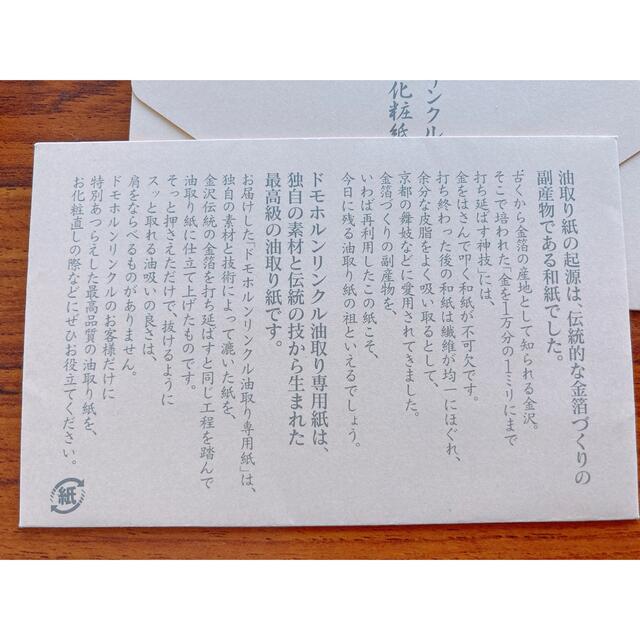 油取り紙の起源は、伝統的な金箔づくりの
副産物である和紙でした。
古くから金箔の産地として知られる金沢。
そこで培われた「金を1万分の1ミリにまで
打ち延ばす神技」には、
金をはさんで叩く和紙が不可欠です。
打ち終わった後の和紙は繊維が均一にほぐれ、
余分な皮脂をよく吸い取るとして、
京都の舞妓などに愛用されてきました。
金箔づくりの副産物を、
いわば再利用したこの紙こそ、
今日に残る油取り紙の祖といえるでしょう。
ドモホルンリンクル油取り専用紙は、
独自の素材と伝統の技から生まれた
最高級の油取り紙です。
お届けした「ドモホルンリンクル油取り専用紙」は、
独自の素材と技術によって漉いた紙を、
金沢伝統の金箔を打ち延ばすと同じ工程を踏んで
油取り紙に仕立て上げたものです。
そっと押さえただけで、抜けるように
スッと取れる油吸いの良さは、
肩をならべるものがありません。
ドモホルンリンクルのお客様だけに
特別あつらえした最高品質の油取り紙を、
お化粧直しの際などにぜひお役立てください。
紙
リンクル
化粧紙